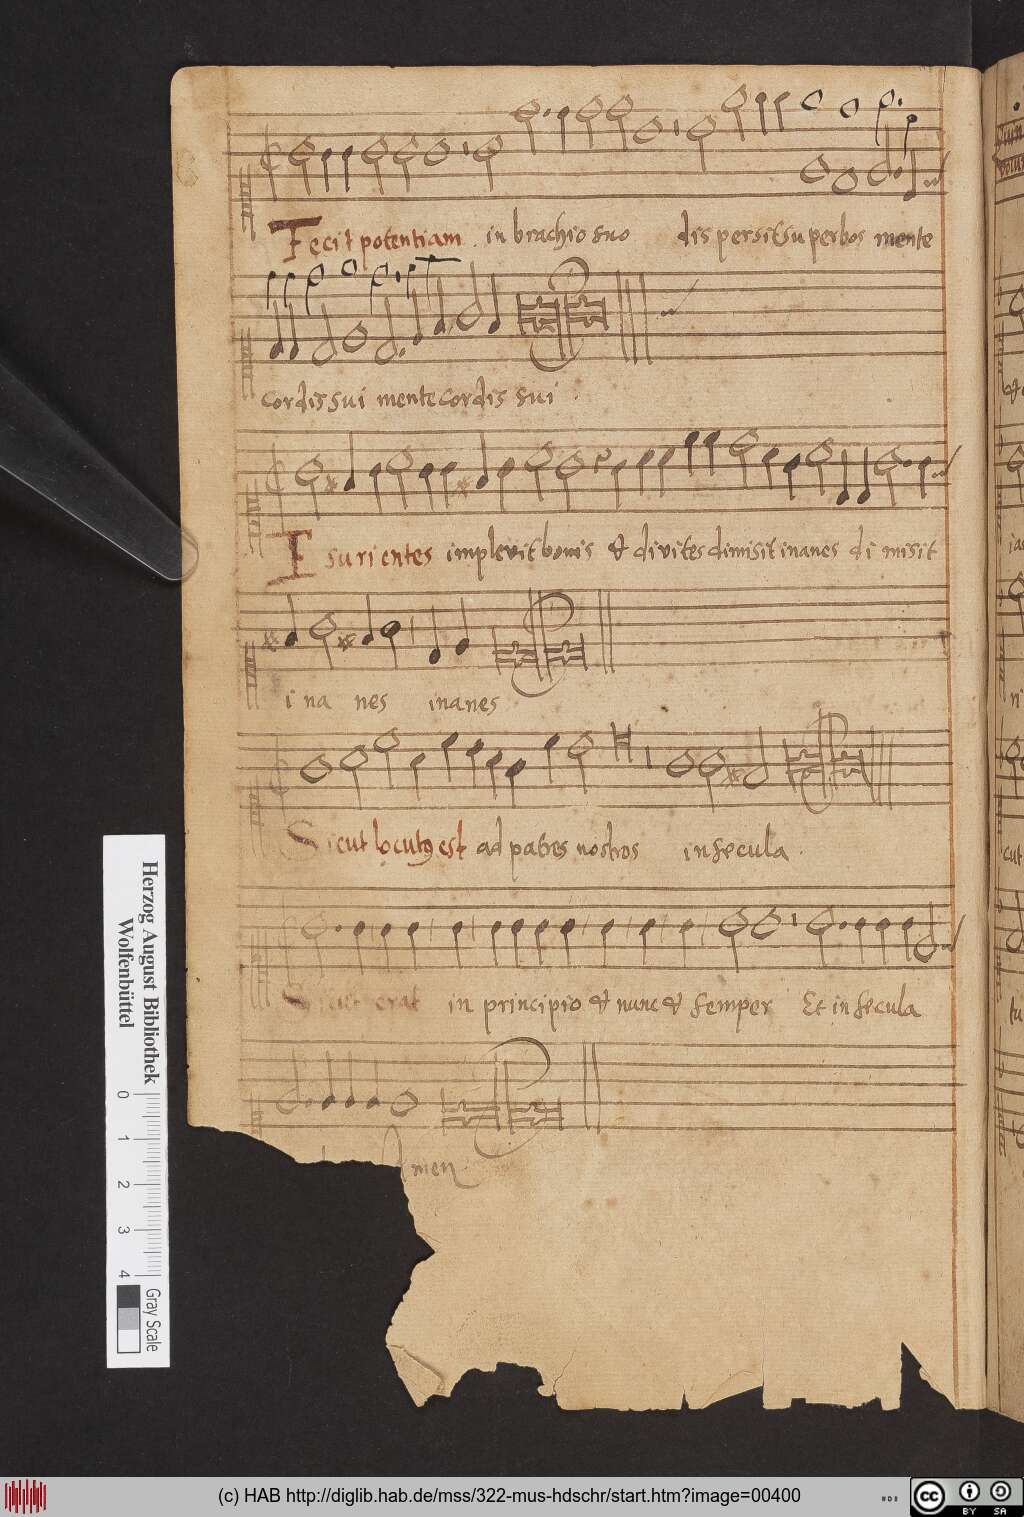 Fecit potentiam in brachio suo dispersit superbos mente
cordis sui mente cordis sui
Esurientes implevit bonis & divites dimisit inanes di misit
i na nes inanes
Sicut locutꝰ est ad patres nostros in secula
Sicut erat in principio & nunc & semper Et in secula
Amen
Herzog August Bibliothek
Wolfenbüttel
0 1 2 3 4 Gray Scale
(c) HAB http://diglib.hab.de/mss/322-mus-hdschr/start.htm?image=00400
cc BY SA